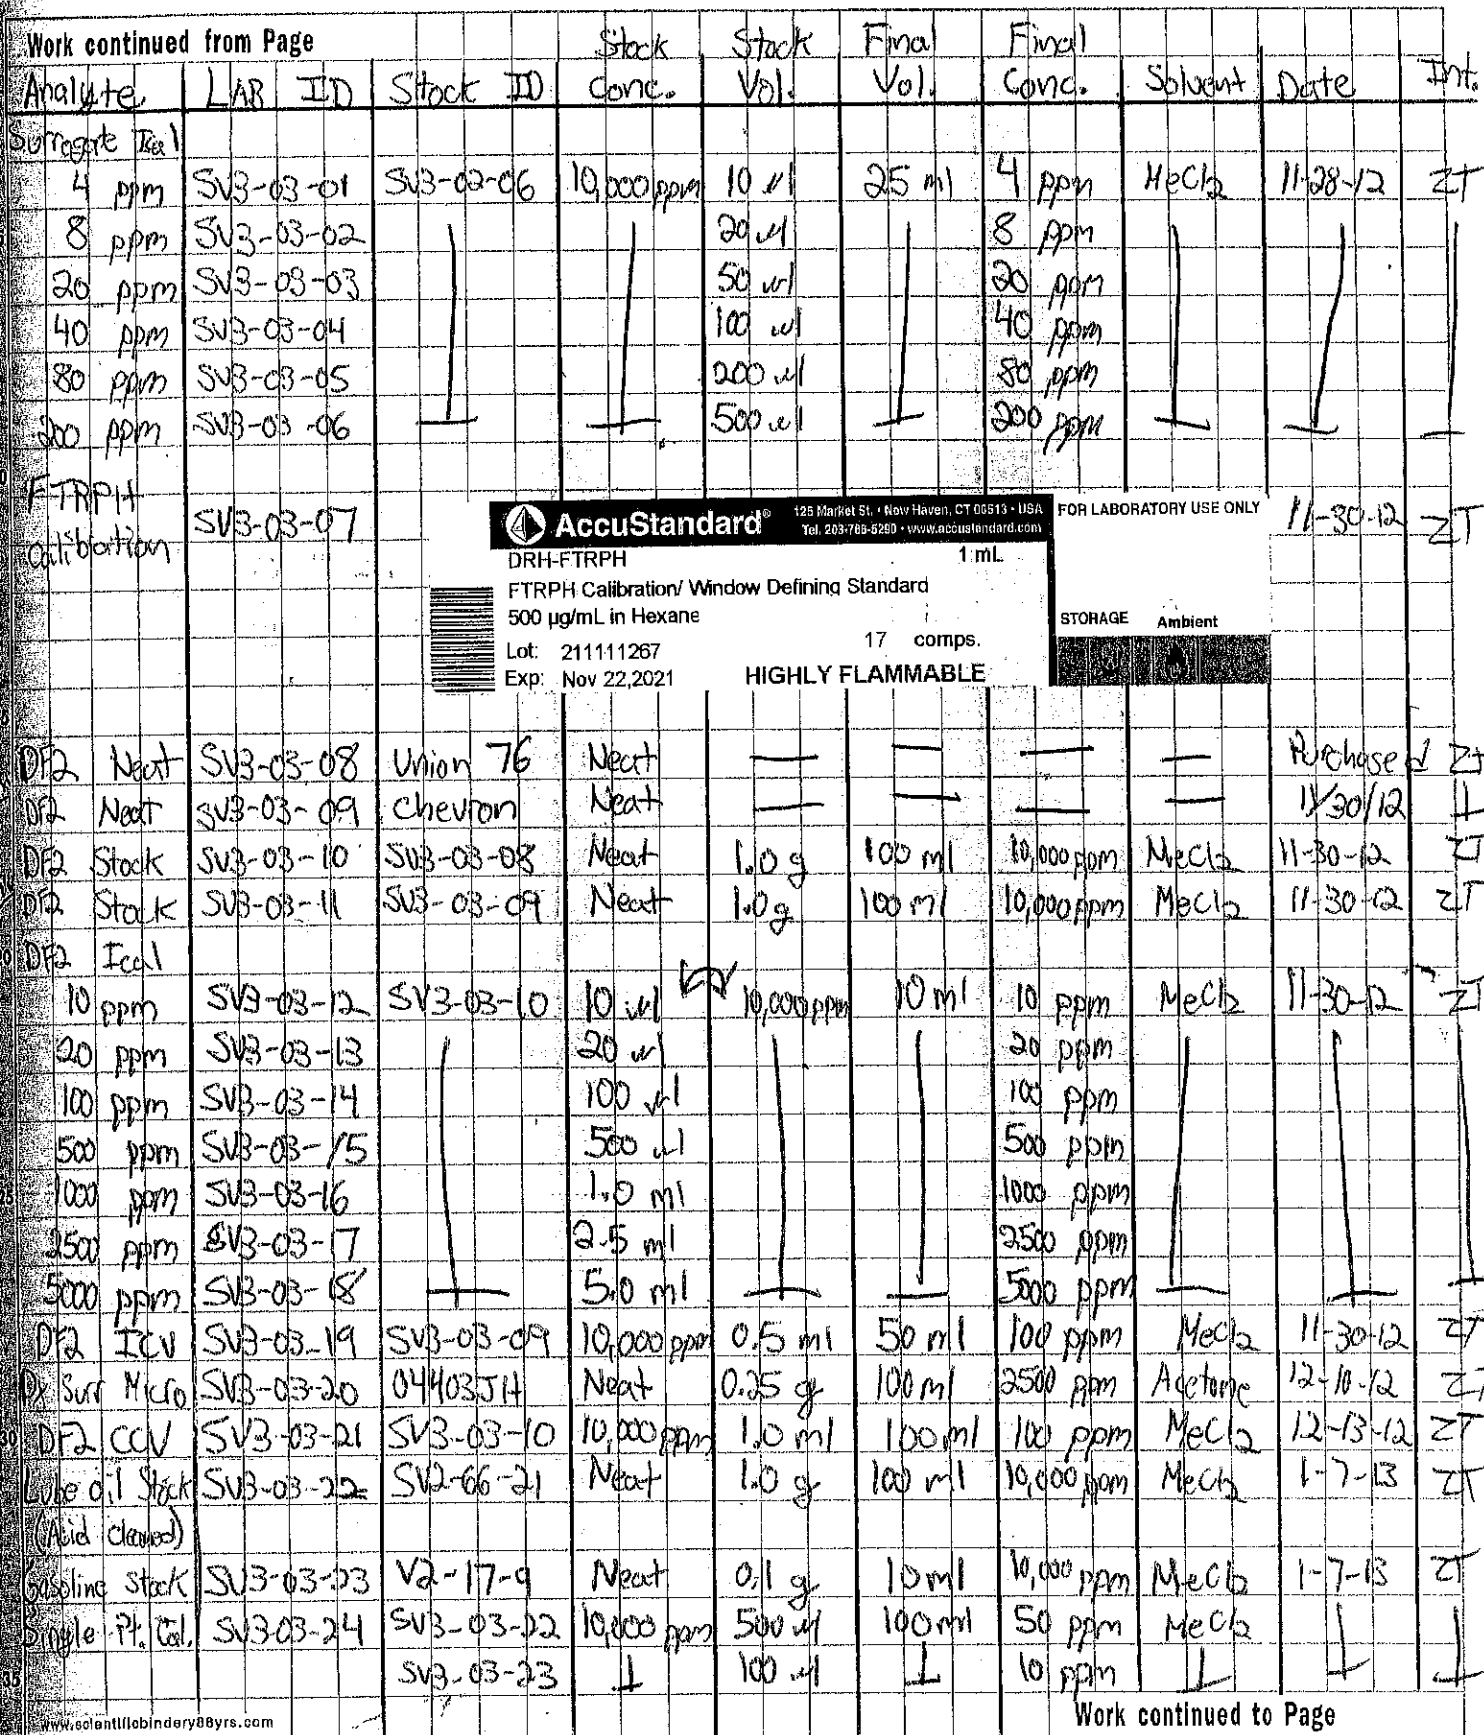 Work continued from Page
Stock Stock Final Final
Analyte LAB ID Stock ID Conc. Vol. Vol. Conc. Solvent Date Int.
Surrogate Ical
4 ppm SV3-03-01 SV3-02-06 10,000 ppm 10 ul 25 ml 4 ppm MeCl2 11-28-12 ZT
8 ppm SV3-03-02 20 ul 8 ppm
20 ppm SV3-03-03 50 ul 20 ppm
40 ppm SV3-03-04 100 ul 40 ppm
80 ppm SV3-03-05 200 ul 80 ppm
200 ppm SV3-03-06 500 ul 200 ppm
FTRPH
Calibration SV3-03-07 11-30-12 ZT
AccuStandard® 125 Market St. • New Haven, CT 06513 • USA
Tel. 203-786-5290 • www.accustandard.com
FOR LABORATORY USE ONLY
DRH-FTRPH 1 mL
FTRPH Calibration/ Window Defining Standard
500 µg/mL in Hexane
STORAGE Ambient
17 comps.
Lot: 211111267
Exp: Nov 22,2021 HIGHLY FLAMMABLE
DF2 Neat SV3-03-08 Union 76 Neat — — — — Purchased ZT
DF2 Neat SV3-03-09 Chevron Neat — — — — 11/30/12
DF2 Stock SV3-03-10 SV3-03-08 Neat 1.0 g 100 ml 10,000 ppm MeCl2 11-30-12 ZT
DF2 Stock SV3-03-11 SV3-03-09 Neat 1.0 g 100 ml 10,000 ppm MeCl2 11-30-12 ZT
DF2 Ical
10 ppm SV3-03-12 SV3-03-10 10 ul 10,000 ppm 10 ml 10 ppm MeCl2 11-30-12 ZT
20 ppm SV3-03-13 20 ul 20 ppm
100 ppm SV3-03-14 100 ul 100 ppm
500 ppm SV3-03-15 500 ul 500 ppm
1000 ppm SV3-03-16 1.0 ml 1000 ppm
2500 ppm SV3-03-17 2.5 ml 2500 ppm
5000 ppm SV3-03-18 5.0 ml 5000 ppm
DF2 ICV SV3-03-19 SV3-03-09 10,000 ppm 0.5 ml 50 ml 100 ppm MeCl2 11-30-12 ZT
Dx Surr Micro SV3-03-20 04403JH Neat 0.25 g 100 ml 2500 ppm Acetone 12-10-12 ZT
DF2 CCV SV3-03-21 SV3-03-10 10,000 ppm 1.0 ml 100 ml 100 ppm MeCl2 12-13-12 ZT
Lube oil Stock SV3-03-22 SV2-66-21 Neat 1.0 g 100 ml 10,000 ppm MeCl2 1-7-13 ZT
(Acid cleaned)
Gasoline Stock SV3-03-23 V2-17-9 Neat 0.1 g 10 ml 10,000 ppm MeCl2 1-7-13 ZT
Single Pt. Cal. SV3-03-24 SV3-03-22 10,000 ppm 500 ul 100 ml 50 ppm MeCl2
SV3-03-23 100 ul 10 ppm
www.scientificbindery88yrs.com
Work continued to Page